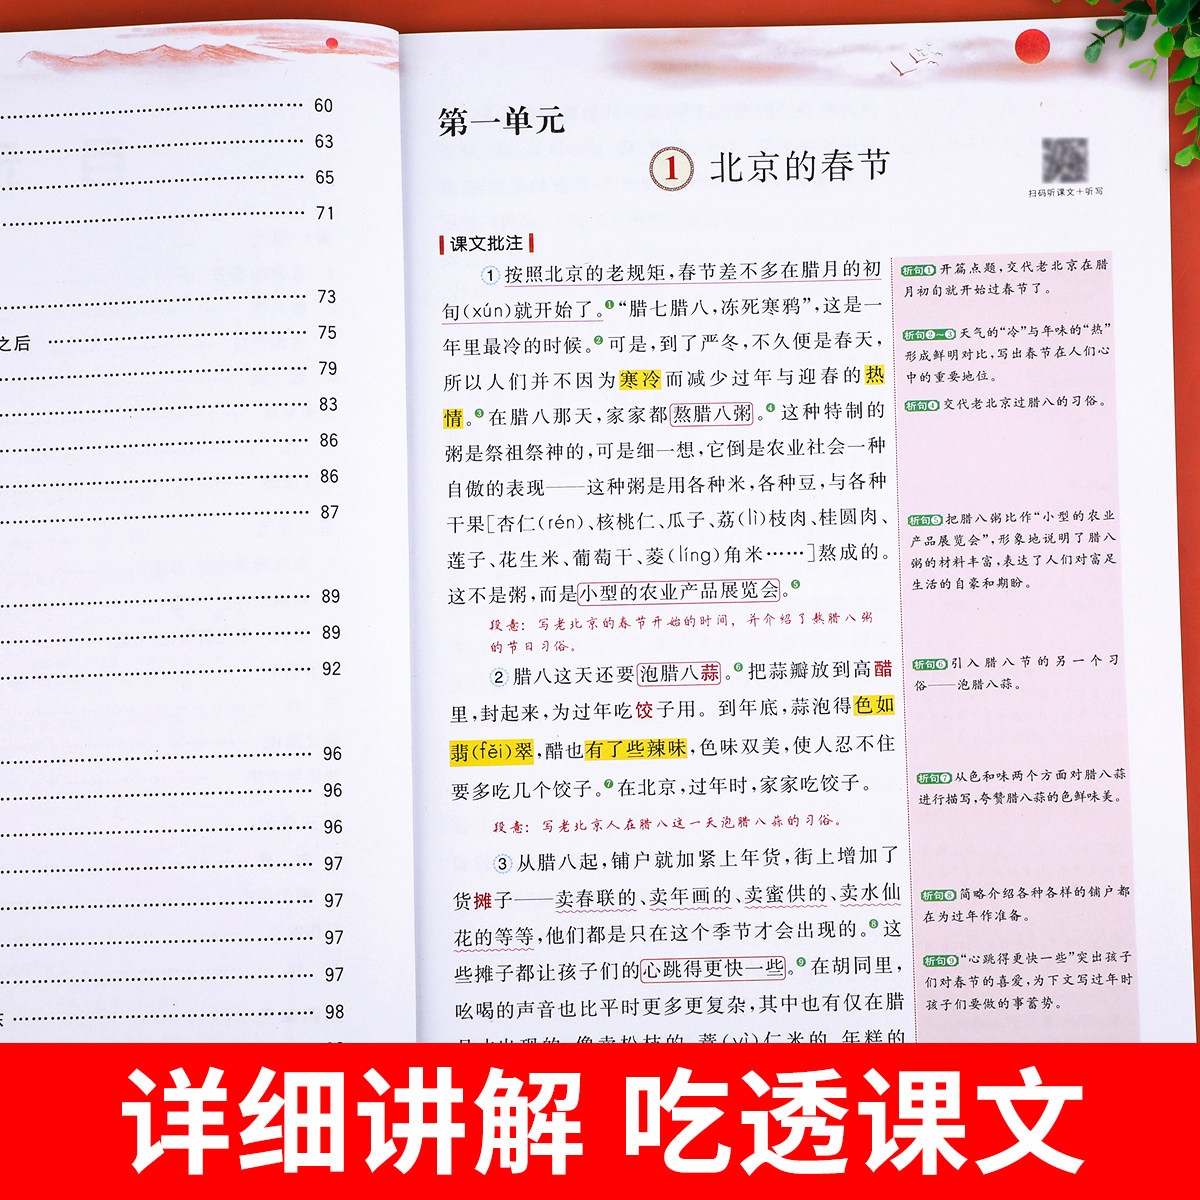 60
63
65
71
73
之后 75
79
83
86
86
87
89
89
92
96
96
96
97
97
97
97
98
第一单元
1 北京的春节
扫码听课文+听写
课文批注
①按照北京的老规矩,春节差不多在腊月的初
旬(xún)就开始了。❶“腊七腊八,冻死寒鸦”,这是一
年里最冷的时候。❷可是,到了严冬,不久便是春天,
所以人们并不因为寒冷而减少过年与迎春的热
情。❸在腊八那天,家家都熬腊八粥。❹这种特制的
粥是祭祖祭神的,可是细一想,它倒是农业社会一种
自傲的表现——这种粥是用各种米,各种豆,与各种
干果[杏仁(rén)、核桃仁、瓜子、荔(lì)枝肉、桂圆肉、
莲子、花生米、葡萄干、菱(líng)角米……]熬成的。
这不是粥,而是小型的农业产品展览会。❺
段意:写老北京的春节开始的时间,并介绍了熬腊八粥
的节日习俗。
②腊八这天还要泡腊八蒜。❻把蒜瓣放到高醋
里,封起来,为过年吃饺子用。到年底,蒜泡得色如
翡(fěi)翠,醋也有了些辣味,色味双美,使人忍不住
要多吃几个饺子。❼在北京,过年时,家家吃饺子。
段意:写老北京人在腊八这一天泡腊八蒜的习俗。
③从腊八起,铺户就加紧上年货,街上增加了
货摊子——卖春联的、卖年画的、卖蜜供的、卖水仙
花的等等,他们都是只在这个季节才会出现的。❽这
些摊子都让孩子们的心跳得更快一些。❾在胡同里,
吆喝的声音也比平时更多更复杂,其中也有仅在腊
月才出现的,像卖松枝的、薏(yì)仁米的、年糕的
析句❶开篇点题,交代老北京在腊
月初旬就开始过春节了。
析句❷~❸天气的“冷”与年味的“热”
形成鲜明对比,写出春节在人们心
中的重要地位。
析句❹交代老北京过腊八的习俗。
析句❺把腊八粥比作“小型的农业
产品展览会”,形象地说明了腊八
粥的材料丰富,表达了人们对富足
生活的自豪和期盼。
析句❻引入腊八节的另一个习
俗——泡腊八蒜。
析句❼从色和味两个方面对腊八蒜
进行描写,夸赞腊八蒜的色鲜味美。
析句❽简略介绍各种各样的铺户都
在为过年作准备。
析句❾“心跳得更快一些”突出孩子
们对春节的喜爱,为下文写过年时
孩子们要做的事蓄势。
详细讲解 吃透课文